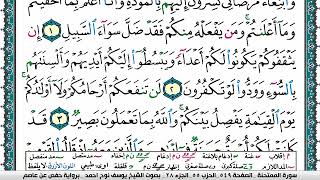 وَٱبۡتِغَآءَ مَرۡضَاتِيۚ تُسِرُّونَ إِلَيۡهِم بِٱلۡمَوَدَّةِ وَأَنَا۠ أَعۡلَمُ بِمَآ أَخۡفَيۡتُمۡ
وَمَآ أَعۡلَنتُمۡۚ وَمَن يَفۡعَلۡهُ مِنكُمۡ فَقَدۡ ضَلَّ سَوَآءَ ٱلسَّبِيلِ ١ إِن
يَثۡقَفُوكُمۡ يَكُونُواْ لَكُمۡ أَعۡدَآءٗ وَيَبۡسُطُوٓاْ إِلَيۡكُمۡ أَيۡدِيَهُمۡ وَأَلۡسِنَتَهُم
بِٱلسُّوٓءِ وَوَدُّواْ لَوۡ تَكۡفُرُونَ ٢ لَن تَنفَعَكُمۡ أَرۡحَامُكُمۡ وَلَآ أَوۡلَٰدُكُمۡۚ
يَوۡمَ ٱلۡقِيَٰمَةِ يَفۡصِلُ بَيۡنَكُمۡۚ وَٱللَّهُ بِمَا تَعۡمَلُونَ بَصِيرٞ ٣
سورة الممتحنة . الصفحة ٥٤٩ . الحزب ٥٥ . الجزء ٢٨ . بصوت الشيخ يوسف نوح احمد . برواية حفص عن عاصم